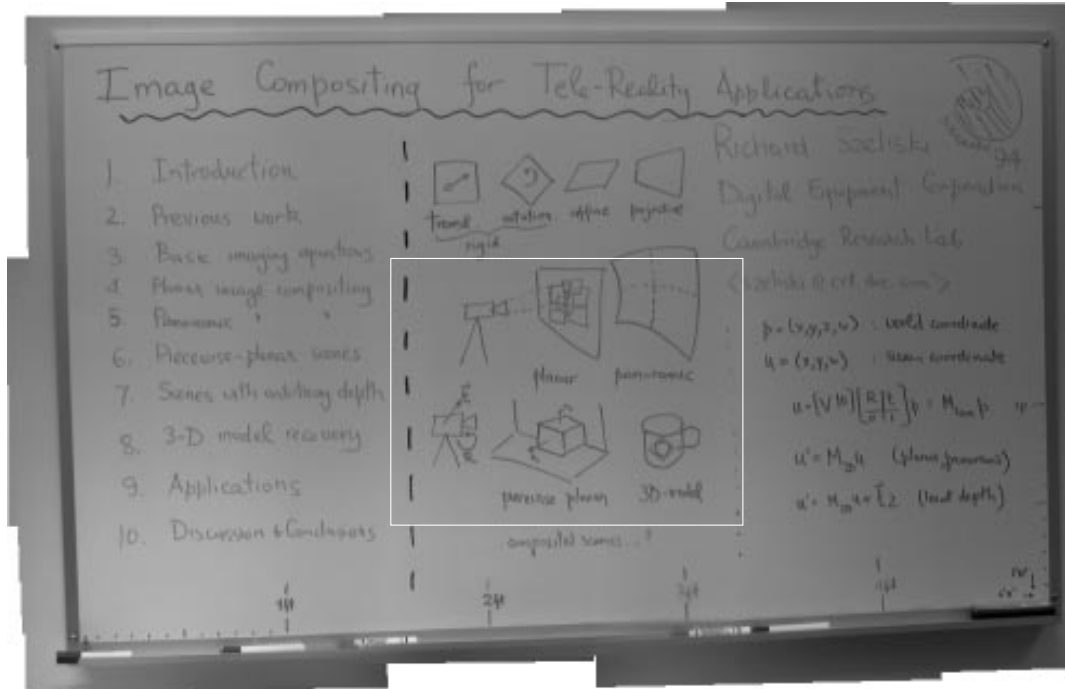 Image Compositing for Tele-Reality Applications
1. Introduction
2. Previous work
3. Basic imaging equations
4. Planar image compositing
5. Panoramic " "
6. Piecewise-planar scenes
7. Scenes with arbitrary depth
8. 3-D model recovery
9. Applications
10. Discussion & Conclusions
transl rotation affine projective
rigid
planar panoramic
piecewise planar 3D-model
composited scenes...?
Richard Szeliski
94
Digital Equipment Corporation
Cambridge Research Lab
<szeliski@crl.dec.com>
p = (x,y,z,w) : world coordinate
u = (x,y,w) : screen coordinate
u' = M₂D u (planar, panoramic)
(local depth)
1ft 2ft 3ft 4ft